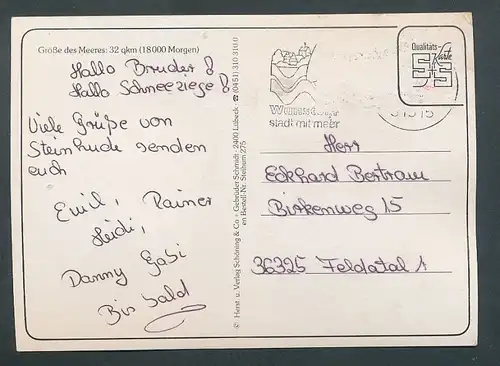 Größe des Meeres: 32 qkm (18 000 Morgen)
Hallo Bruder!
Hallo Schneeziege!
Viele Grüße von
Steinhude senden
euch
Emil, Rainer
Heidi,
Danny Gabi
Bis bald
© Herst. u. Verlag Schöning & Co + Gebrüder Schmidt · 2400 Lübeck · ☎ (0451) 310 310.0
en Bestell-Nr. Steihum 275
stadt mit meer
Qualitäts-
Karte
Herr
Eckhard Bertram
Birkenweg 15
36325 Feldatal 1